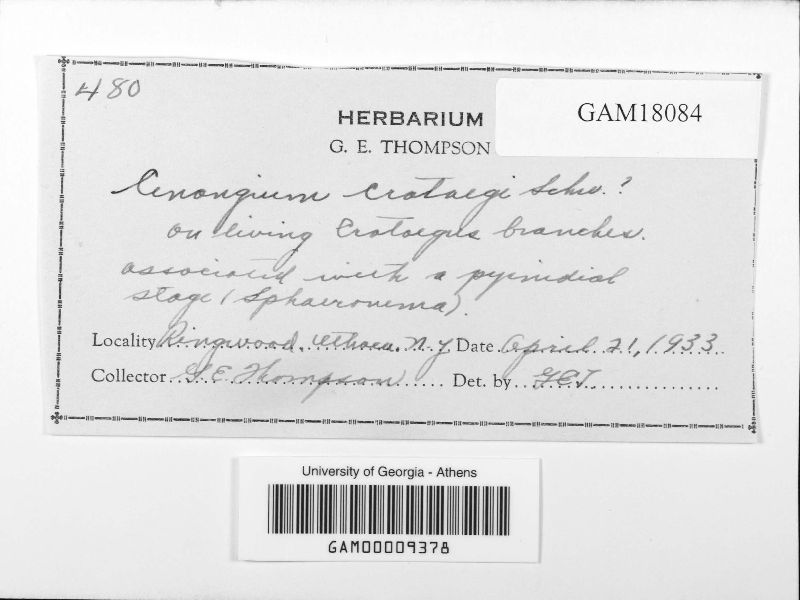 480
GAM18084
HERBARIUM
G. E. THOMPSON
Cenangium Crataegi Schw.?
on living Crataegus branches.
associated with a pycnidial
stage (Sphaeronema).
Locality Ringwood, Ithaca, N.Y Date April 21, 1933
Collector G E Thompson Det. by GET
University of Georgia - Athens
GAM00009378